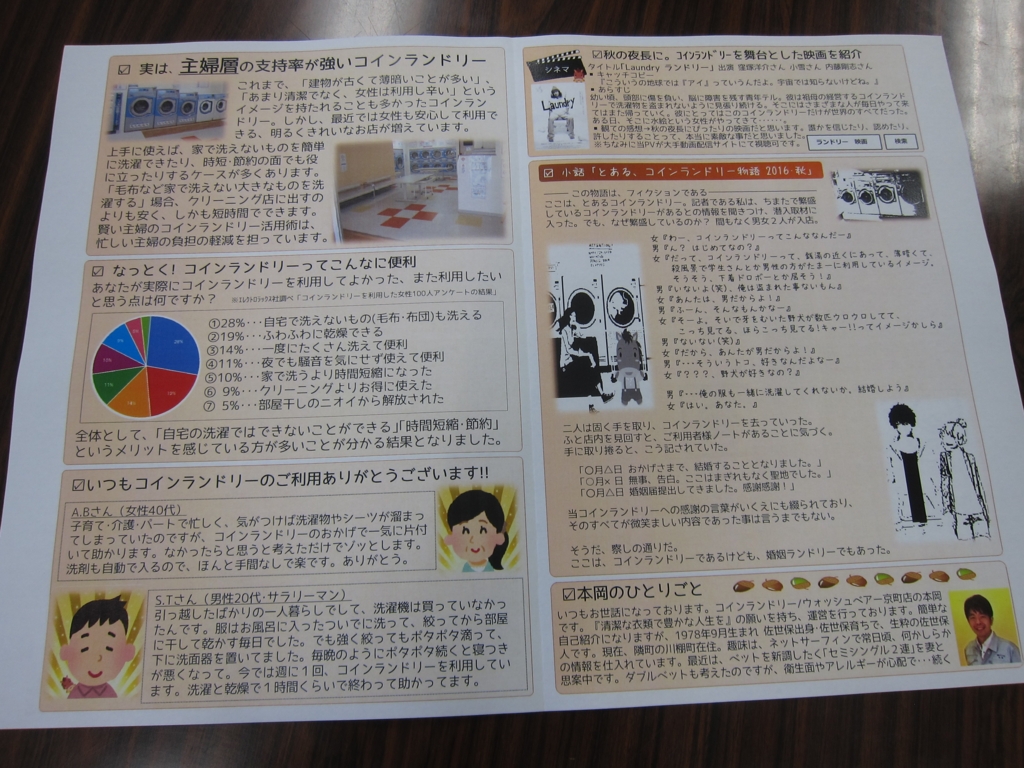 ☑ 実は、主婦層の支持率が強いコインランドリー
これまで、「建物が古くて薄暗いことが多い」、
「あまり清潔でなく、女性は利用し辛い」という
イメージを持たれることも多かったコインラン
ドリー。しかし、最近では女性も安心して利用で
きる、明るくきれいなお店が増えています。
上手に使えば、家で洗えないものを簡単
に洗濯できたり、時短・節約の面でも役
に立ったりするケースが多くあります。
「毛布など家で洗えない大きなものを洗
濯する」場合、クリーニング店に出すの
よりも安く、しかも短時間でできます。
賢い主婦のコインランドリー活用術は、
忙しい主婦の負担の軽減を担っています。
☑ なっとく!コインランドリーってこんなに便利
あなたが実際にコインランドリーを利用してよかった、また利用したい
と思う点は何ですか? ※エレクトロラックス社調べ「コインランドリーを利用した女性100人アンケートの結果」
28%
19%
14%
11%
10%
9%
5%
①28%･･･自宅で洗えないもの(毛布・布団)も洗える
②19%･･･ふわふわに乾燥できる
③14%･･･一度にたくさん洗えて便利
④11%･･･夜でも騒音を気にせず使えて便利
⑤10%･･･家で洗うより時間短縮になった
⑥ 9%･･･クリーニングよりお得に使えた
⑦ 5%･･･部屋干しのニオイから解放された
全体として、「自宅の洗濯ではできないことができる」「時間短縮・節約」
というメリットを感じている方が多いことが分かる結果となりました。
☑いつもコインランドリーのご利用ありがとうございます!!
A.Bさん(女性40代)
子育て・介護・パートで忙しく、気がつけば洗濯物やシーツが溜まっ
てしまっていたのですが、コインランドリーのおかげで一気に片付
いて助かります。なかったらと思うと考えただけでゾッとします。
洗剤も自動で入るので、ほんと手間なしで楽です。ありがとう。
S.Tさん(男性20代・サラリーマン)
引っ越したばかりの一人暮らしでして、洗濯機は買っていなかっ
たんです。服はお風呂に入ったついでに洗って、絞ってから部屋
に干して乾かす毎日でした。でも強く絞ってもポタポタ滴って、
下に洗面器を置いてました。毎晩のようにポタポタ続くと寝つき
が悪くなって。今では週に1回、コインランドリーを利用してい
ます。洗濯と乾燥で1時間くらいで終わって助かってます。
シネマ
Laundry
☑秋の夜長に。コインランドリーを舞台とした映画を紹介
タイトル「Laundry ランドリー」出演 窪塚洋介さん 小雪さん 内藤剛志さん
▪ キャッチコピー
『こういうの地球では「アイ」っていうんだよ。宇宙では知らないけどね。』
▪ あらすじ
幼い頃、頭部に傷を負い、脳に障害を残す青年テル。彼は祖母の経営するコインランド
リーで洗濯物を盗まれないように見張り続ける。そこにはさまざまな人が毎日やって来
てはまた帰っていく。彼にとってはこのコインランドリーだけが世界のすべてだった。
ある日、そこに水絵という女性がやってきて･･････。
▪ 観ての感想→秋の夜長にぴったりの映画だと思います。誰かを信じたり、認めたり、
許したりすることって、本当に素敵な事だと思いました。
※ちなみに当PVが大手動画配信サイトにて視聴可です。
ランドリー 映画 検索
☑ 小話「とある、コインランドリー物語 2016・秋」
――この物語は、フィクションである――
ここは、とあるコインランドリー。記者である私は、ちまたで繁盛
しているコインランドリーがあるとの情報を聞きつけ、潜入取材に
入った。でも、なぜ繁盛しているのか?間もなく男女2人が入店。
女『わー、コインランドリーってこんななんだー』
男『ん? はじめてなの?』
女『だって、コインランドリーって、銭湯の近くにあって、薄暗くて、
殺風景で学生さんとか男性の方がたまーに利用しているイメージ。
そうそう、下着ドロボーとか居そう!』
男『いないよ(笑)。俺は盗まれた事ないもん』
女『あんたは、男だからよ!』
男『ふーん、そんなもんかなー』
女『そーよ。そいで牙をむいた野犬が数匹ウロウロしてて、
こっち見てる、ほらこっち見てる!キャー!!ってイメージかしら』
男『ないない(笑)』
女『だから、あんたが男だからよ!』
男『･･･そういうトコ、好きなんだよなー』
女『???、野犬が好きなの?』
男『･･･俺の服も一緒に洗濯してくれないか。結婚しよう』
女『はい。あなた。』
二人は固く手を取り、コインランドリーを去っていった。
ふと店内を見回すと、ご利用者様ノートがあることに気づく。
手に取り捲ると、こう記されていた。
「〇月△日 おかげさまで、結婚することとなりました。」
「〇月×日 無事、告白。ここはまぎれもなく聖地でした。」
「〇月△日 婚姻届提出してきました。感謝感謝!」
当コインランドリーへの感謝の言葉がいくえにも綴られており、
そのすべてが微笑ましい内容であった事は言うまでもない。
そうだ、察しの通りだ。
ここは、コインランドリーであるけども、婚姻ランドリーでもあった。
☑本岡のひとりごと
いつもお世話になっております。コインランドリー/ウォッシュベアー京町店の本岡
です。『清潔な衣類で豊かな人生を』の願いを持ち、運営を行っております。簡単な
自己紹介になりますが、1978年9月生まれ 佐世保出身・佐世保育ちで、生粋の佐世保
人です。現在、隣町の川棚町在住。趣味は、ネットサーフィンで常日頃、何かしらか
の情報を仕入れています。最近は、ベッドを新調したく「セミシングル2連」を妻と
思案中です。ダブルベットも考えたのですが、衛生面やアレルギーが心配で･･･続く